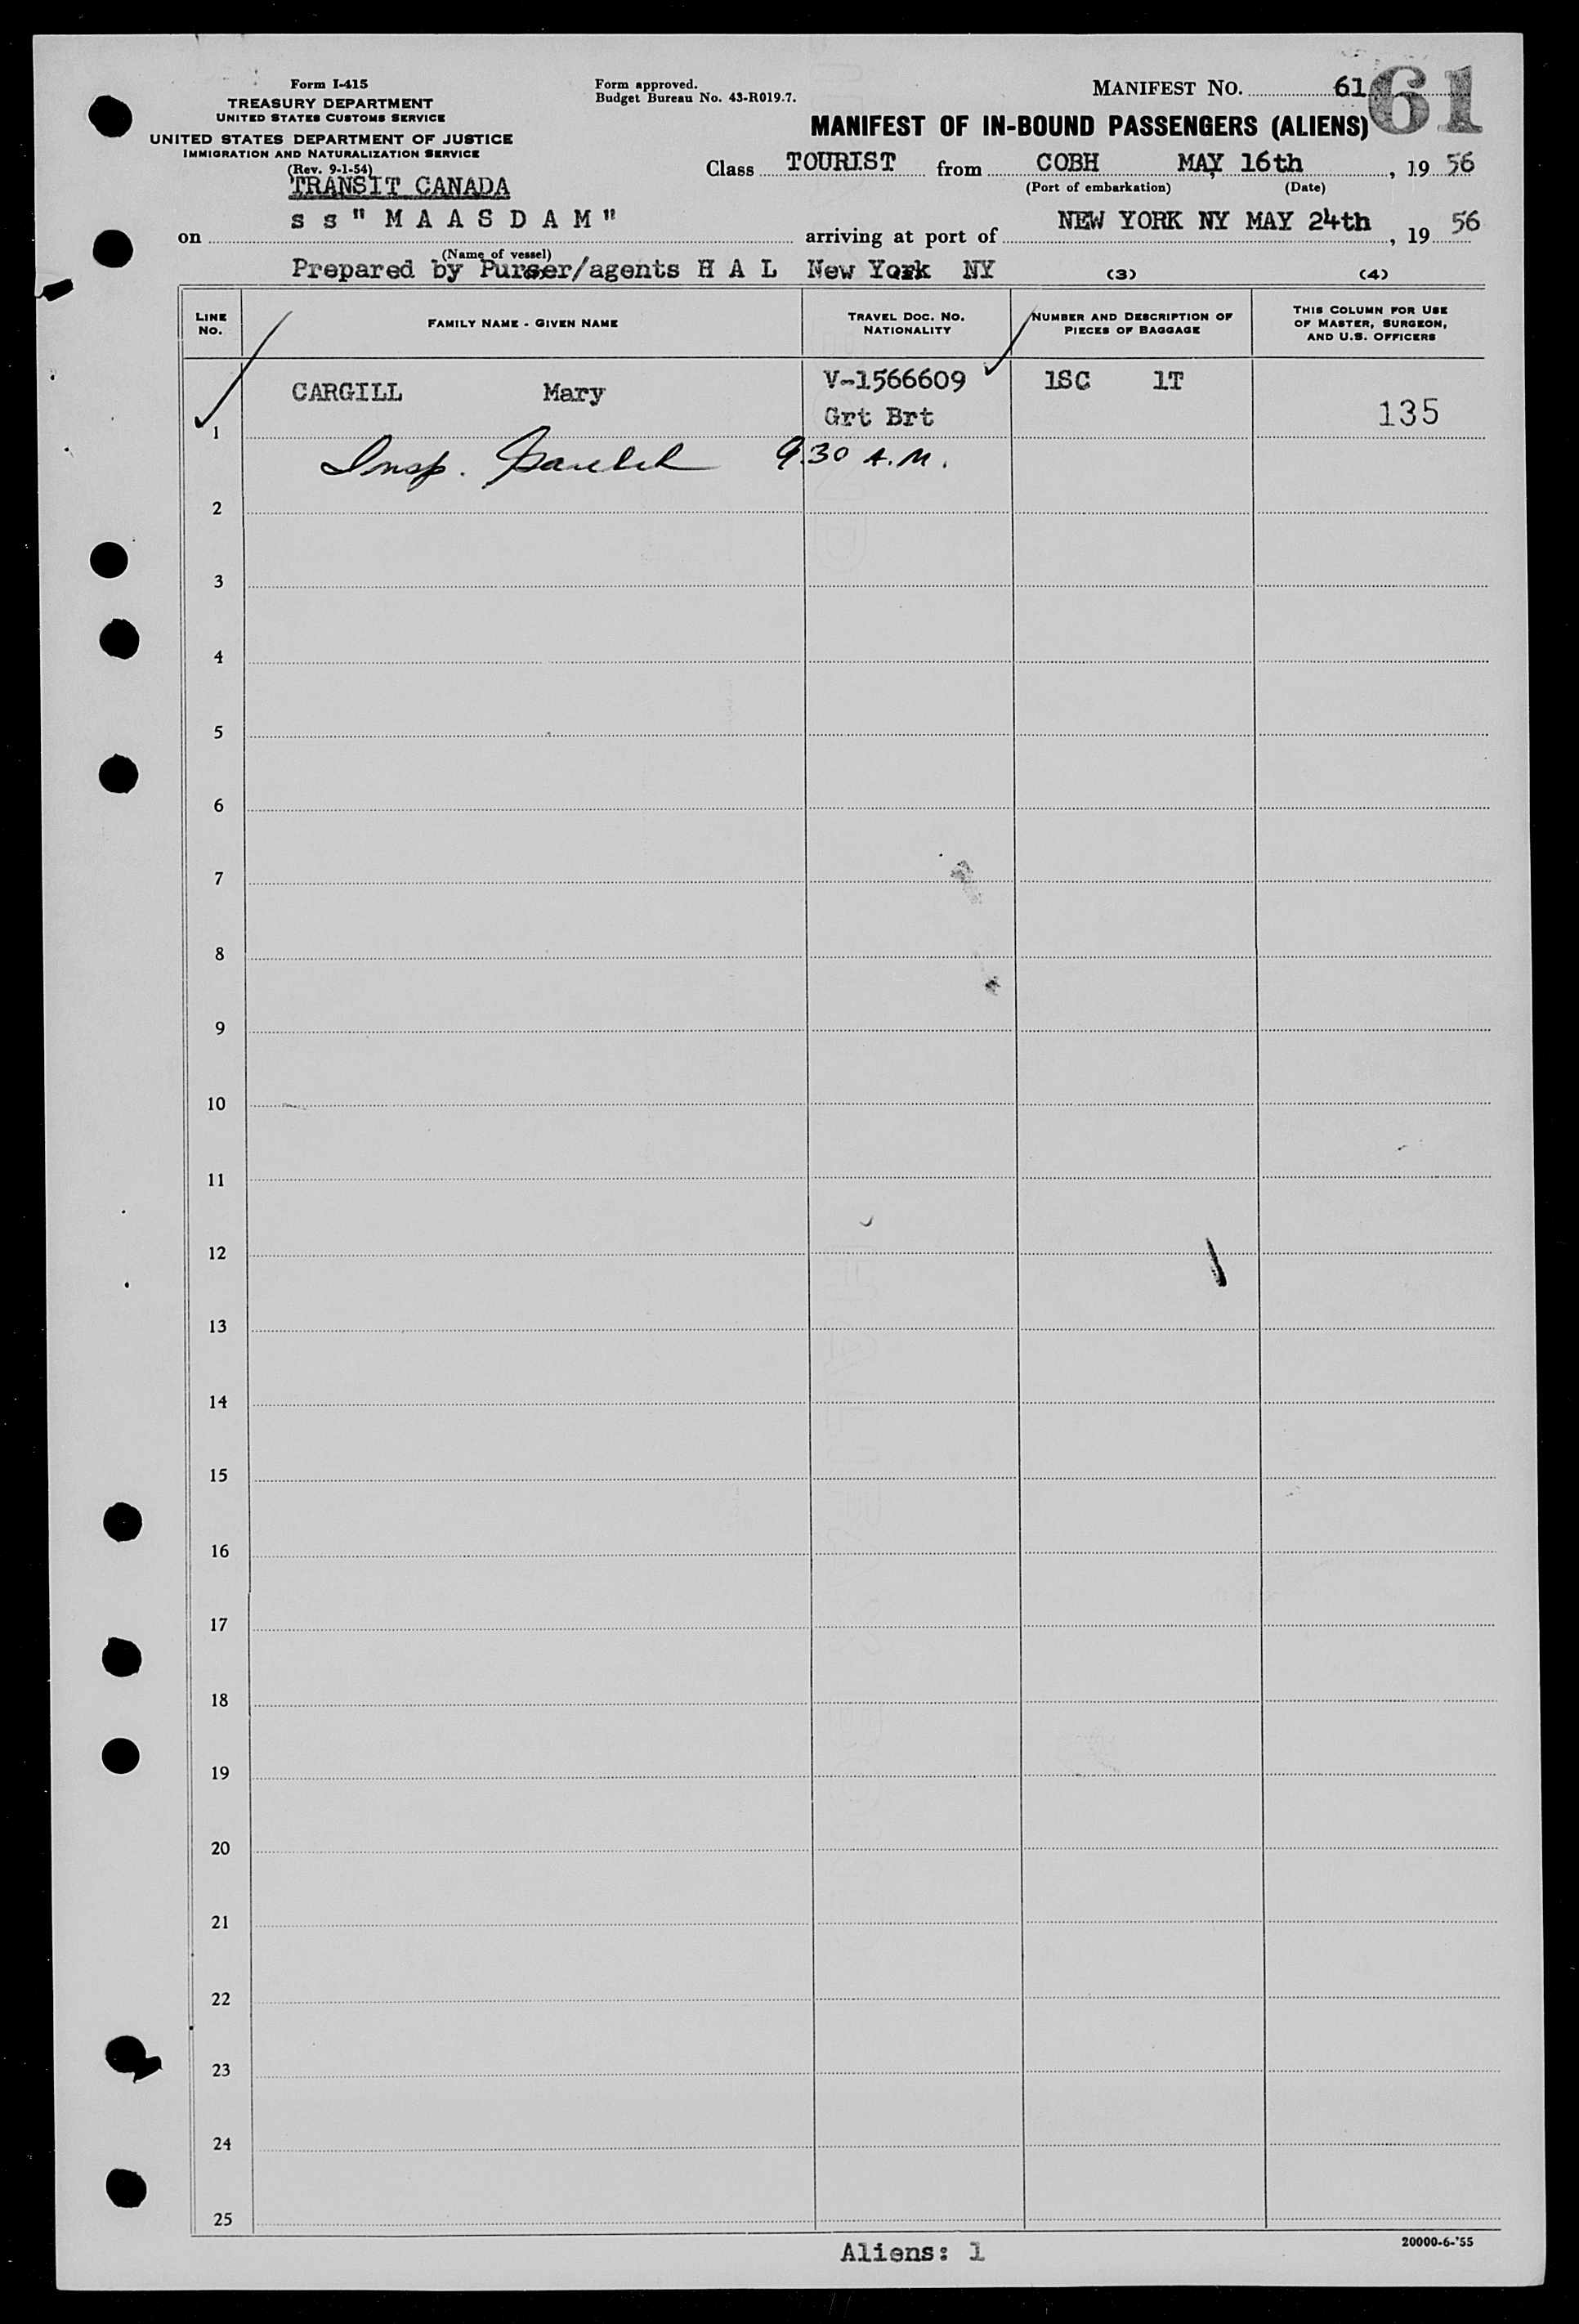 Form I-415
TREASURY DEPARTMENT
UNITED STATES CUSTOMS SERVICE
UNITED STATES DEPARTMENT OF JUSTICE
IMMIGRATION AND NATURALIZATION SERVICE
(Rev. 9-1-54)
TRANSIT CANADA
Form approved.
Budget Bureau No. 43-R019.7.
MANIFEST NO. 61 61
MANIFEST OF IN-BOUND PASSENGERS (ALIENS)
Class TOURIST from COBH MAY 16th, 19 56
(Port of embarkation) (Date)
on s s " M A A S D A M " arriving at port of NEW YORK NY MAY 24th, 19 56
(Name of vessel)
Prepared by Purser/agents H A L New York NY (3) (4)
LINE NO. FAMILY NAME - GIVEN NAME TRAVEL DOC. NO. NATIONALITY NUMBER AND DESCRIPTION OF PIECES OF BAGGAGE THIS COLUMN FOR USE OF MASTER, SURGEON, AND U.S. OFFICERS
CARGILL Mary V-1566609 1SC 1T
1 Grt Brt 135
Insp. 9.30 A.M.
2
3
4
5
6
7
8
9
10
11
12
13
14
15
16
17
18
19
20
21
22
23
24
25
Aliens: 1
20000-6-'55